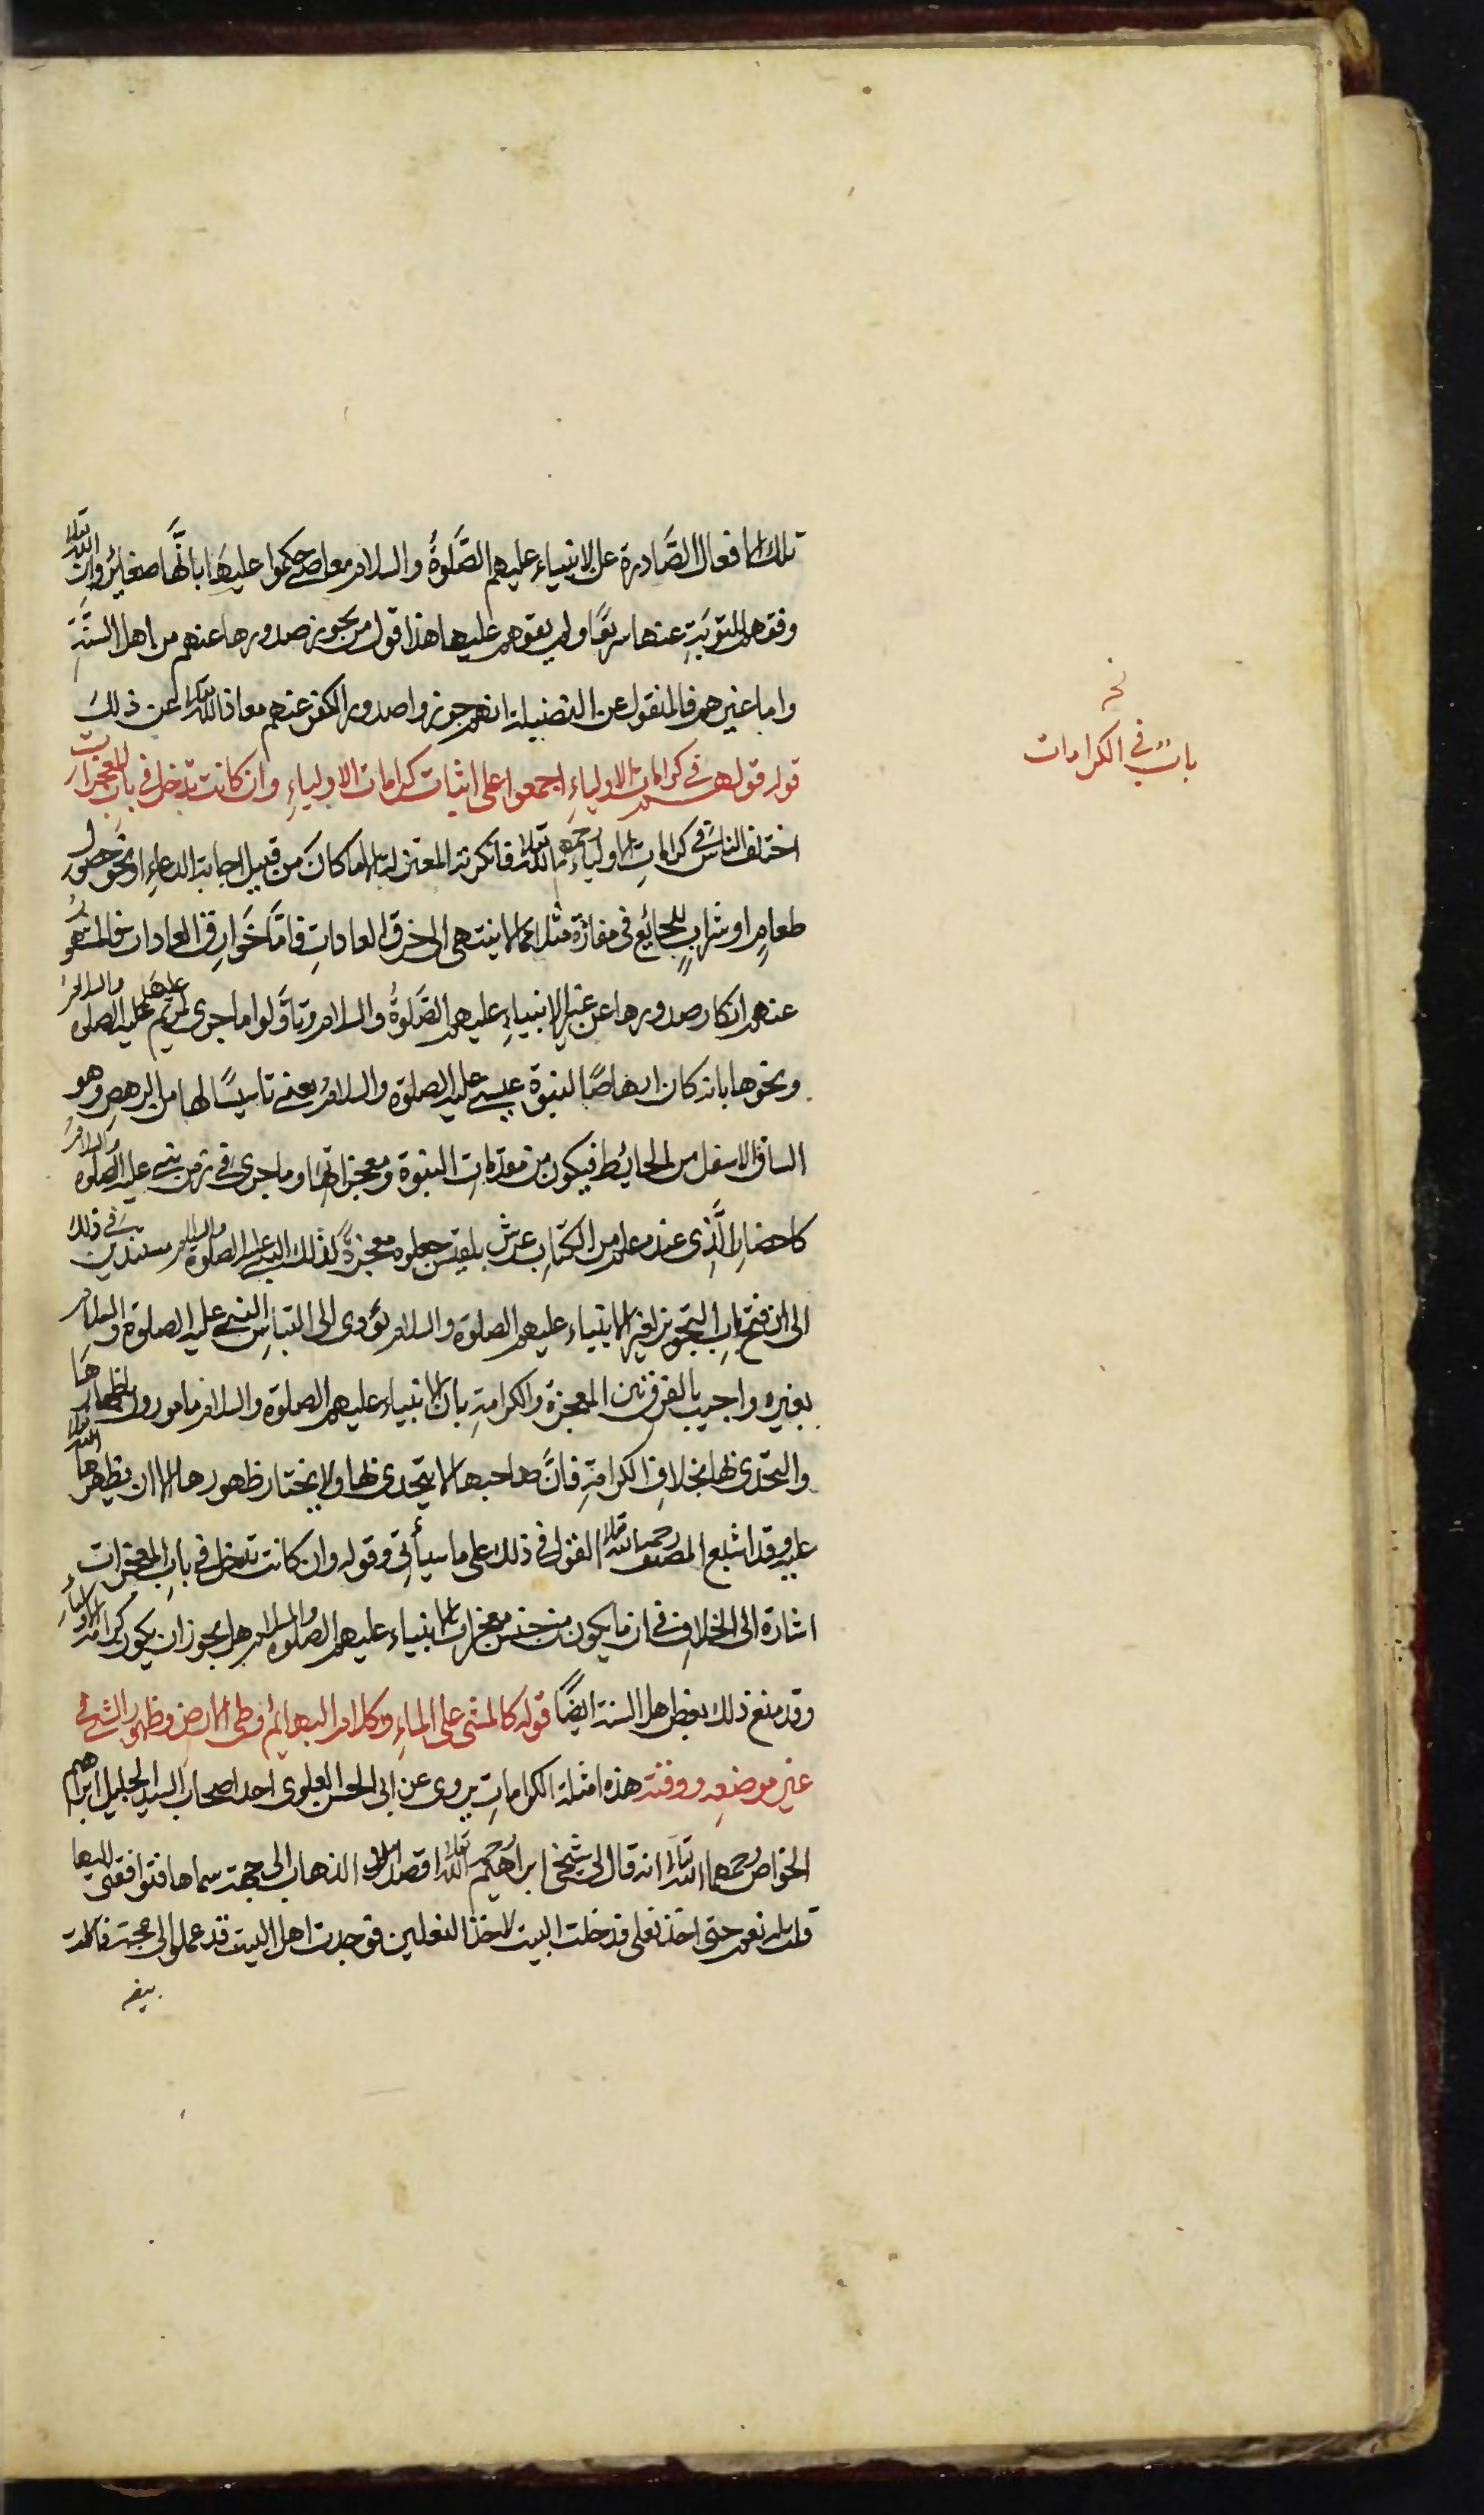 تلك الافعال الصَّادرة عن الانبياء عليهم الصَّلوةُ والسلام معاصى حكموا عليها بانَّها صغائر وان الله تعالى
وفقهم للتوبَةِ عنها سريعًا ولم يقرهم عليها هذا قول من يجوز صدورها عنهم من اهل السنَّةِ
واما غيرهم فالمنقول عن الفضيلية انهم جوزوا صدور الكفر عنهم معاذ الله تعالى عن ذلك
نخـ
بابٌ في الكرامات
قوله قولهم في كرامات الاولياءِ اجمعوا على اثبات كرامات الاولياءِ وان كانت تدخل في باب المعجزات
اختلف الناس في كراماتِ الاولياء رحمهم الله تعالى فانكرته المعتزلة الا ما كانَ من قبيل اجابة الدعاءِ او نحو حصول
طعامٍ او شرابٍ للجائع في مفازة مثلا مما لا ينتهى الى خرق العاداتِ فامَّا خَوارق العادات فالمشهورُ
عنهم انكار صدورها عن غير الانبياءِ عليهم الصَّلوةُ والسلام وتأوَّلوا ما جرى لمريم عليها الصلوة والسلام
ونحوها بانه كان ارهاصًا لنبوة عيسى عليه الصلوة والسلام يعنى تاسيسًا لها من الرهصِ وهو
الساف الاسفل من الحائط فيكون من مقدمات النبوة ومعجزاتها وما جرى في زمن نبى عليه الصلوة والسلام
كاحضار الَّذِى عنده علم من الكتاب عرش بلقيس جعلوه معجزةً لذلك النبى عليه الصلوة والسلام مستندين في ذلك
الى ان فتح بابِ التجويز لغير الانبياء عليهم الصلوة والسلام يؤدى الى التباسِ النبى عليه الصلوة والسلام
بغيره واجيب بالفرق بين المعجزة والكرامةِ بان الانبياء عليهم الصلوة والسلام مامورون باظهارها
والتحدّى بها بخلاف الكرامةِ فانَّ صاحبها لا يتحدى بها ولا يختار ظهورها الا ان يظهرها الله تعالى
عليه وقد اشبع المصنف رحمه الله تعالى القول في ذلك على ما سيأتى وقوله وان كانت تدخل في باب المعجزات
اشارة الى الخلاف في ان ما يكون من جنس معجزات الانبياء عليهم الصلوة والسلام هل يجوز ان يكون كرامة الاولياءِ
وقد منع ذلك بعض اهل السنة ايضًا قوله كالمشى على الماءِ وكلام البهائم وطى الارض وظهور الشئ في
غير موضعِه ووقته هذه امثلة الكراماتِ يروى عن ابى الحسن العلوى احد اصحاب السيد الجليل ابراهيم
الخواص رحمهما الله تعالى انه قال لى شيخى ابراهيم رحمه الله تعالى اقصد الذهاب الى جهة سماها فتوافقنى اليها
قلت له نعم حتى اخذ نعلى فدخلت البيت لاخذ النعلين فوجدت اهل البيت قد عملوا لى عجة فاكلت
بيض